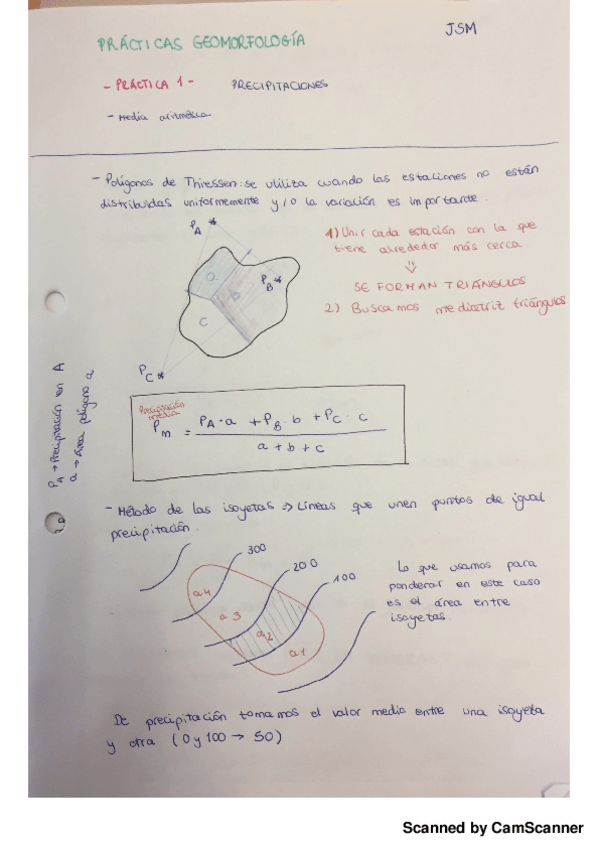 JSM
PRÁCTICAS GEOMORFOLOGÍA
- PRÁCTICA 1 - PRECIPITACIONES
- Media aritmética
- Polígonos de Thiessen: se utiliza cuando las estaciones no están
distribuidas uniformemente y/o la variación es importante.
PA
a
PB
b
c
PC
1) Unir cada estación con la que
tiene alrededor más cerca.
SE FORMAN TRIÁNGULOS
2) Buscamos mediatriz triángulos
PA → Precipitación en A
a → Área polígono a
Precipitación
media
Pm = PA · a + PB · b + PC · c
a + b + c
- Método de las isoyetas => Líneas que unen puntos de igual
precipitación.
300
200
100
a4
a3
a2
a1
Lo que usamos para
ponderar en este caso
es el área entre
isoyetas.
De precipitación tomamos el valor medio entre una isoyeta
y otra (0 y 100 → 50)
Scanned by CamScanner